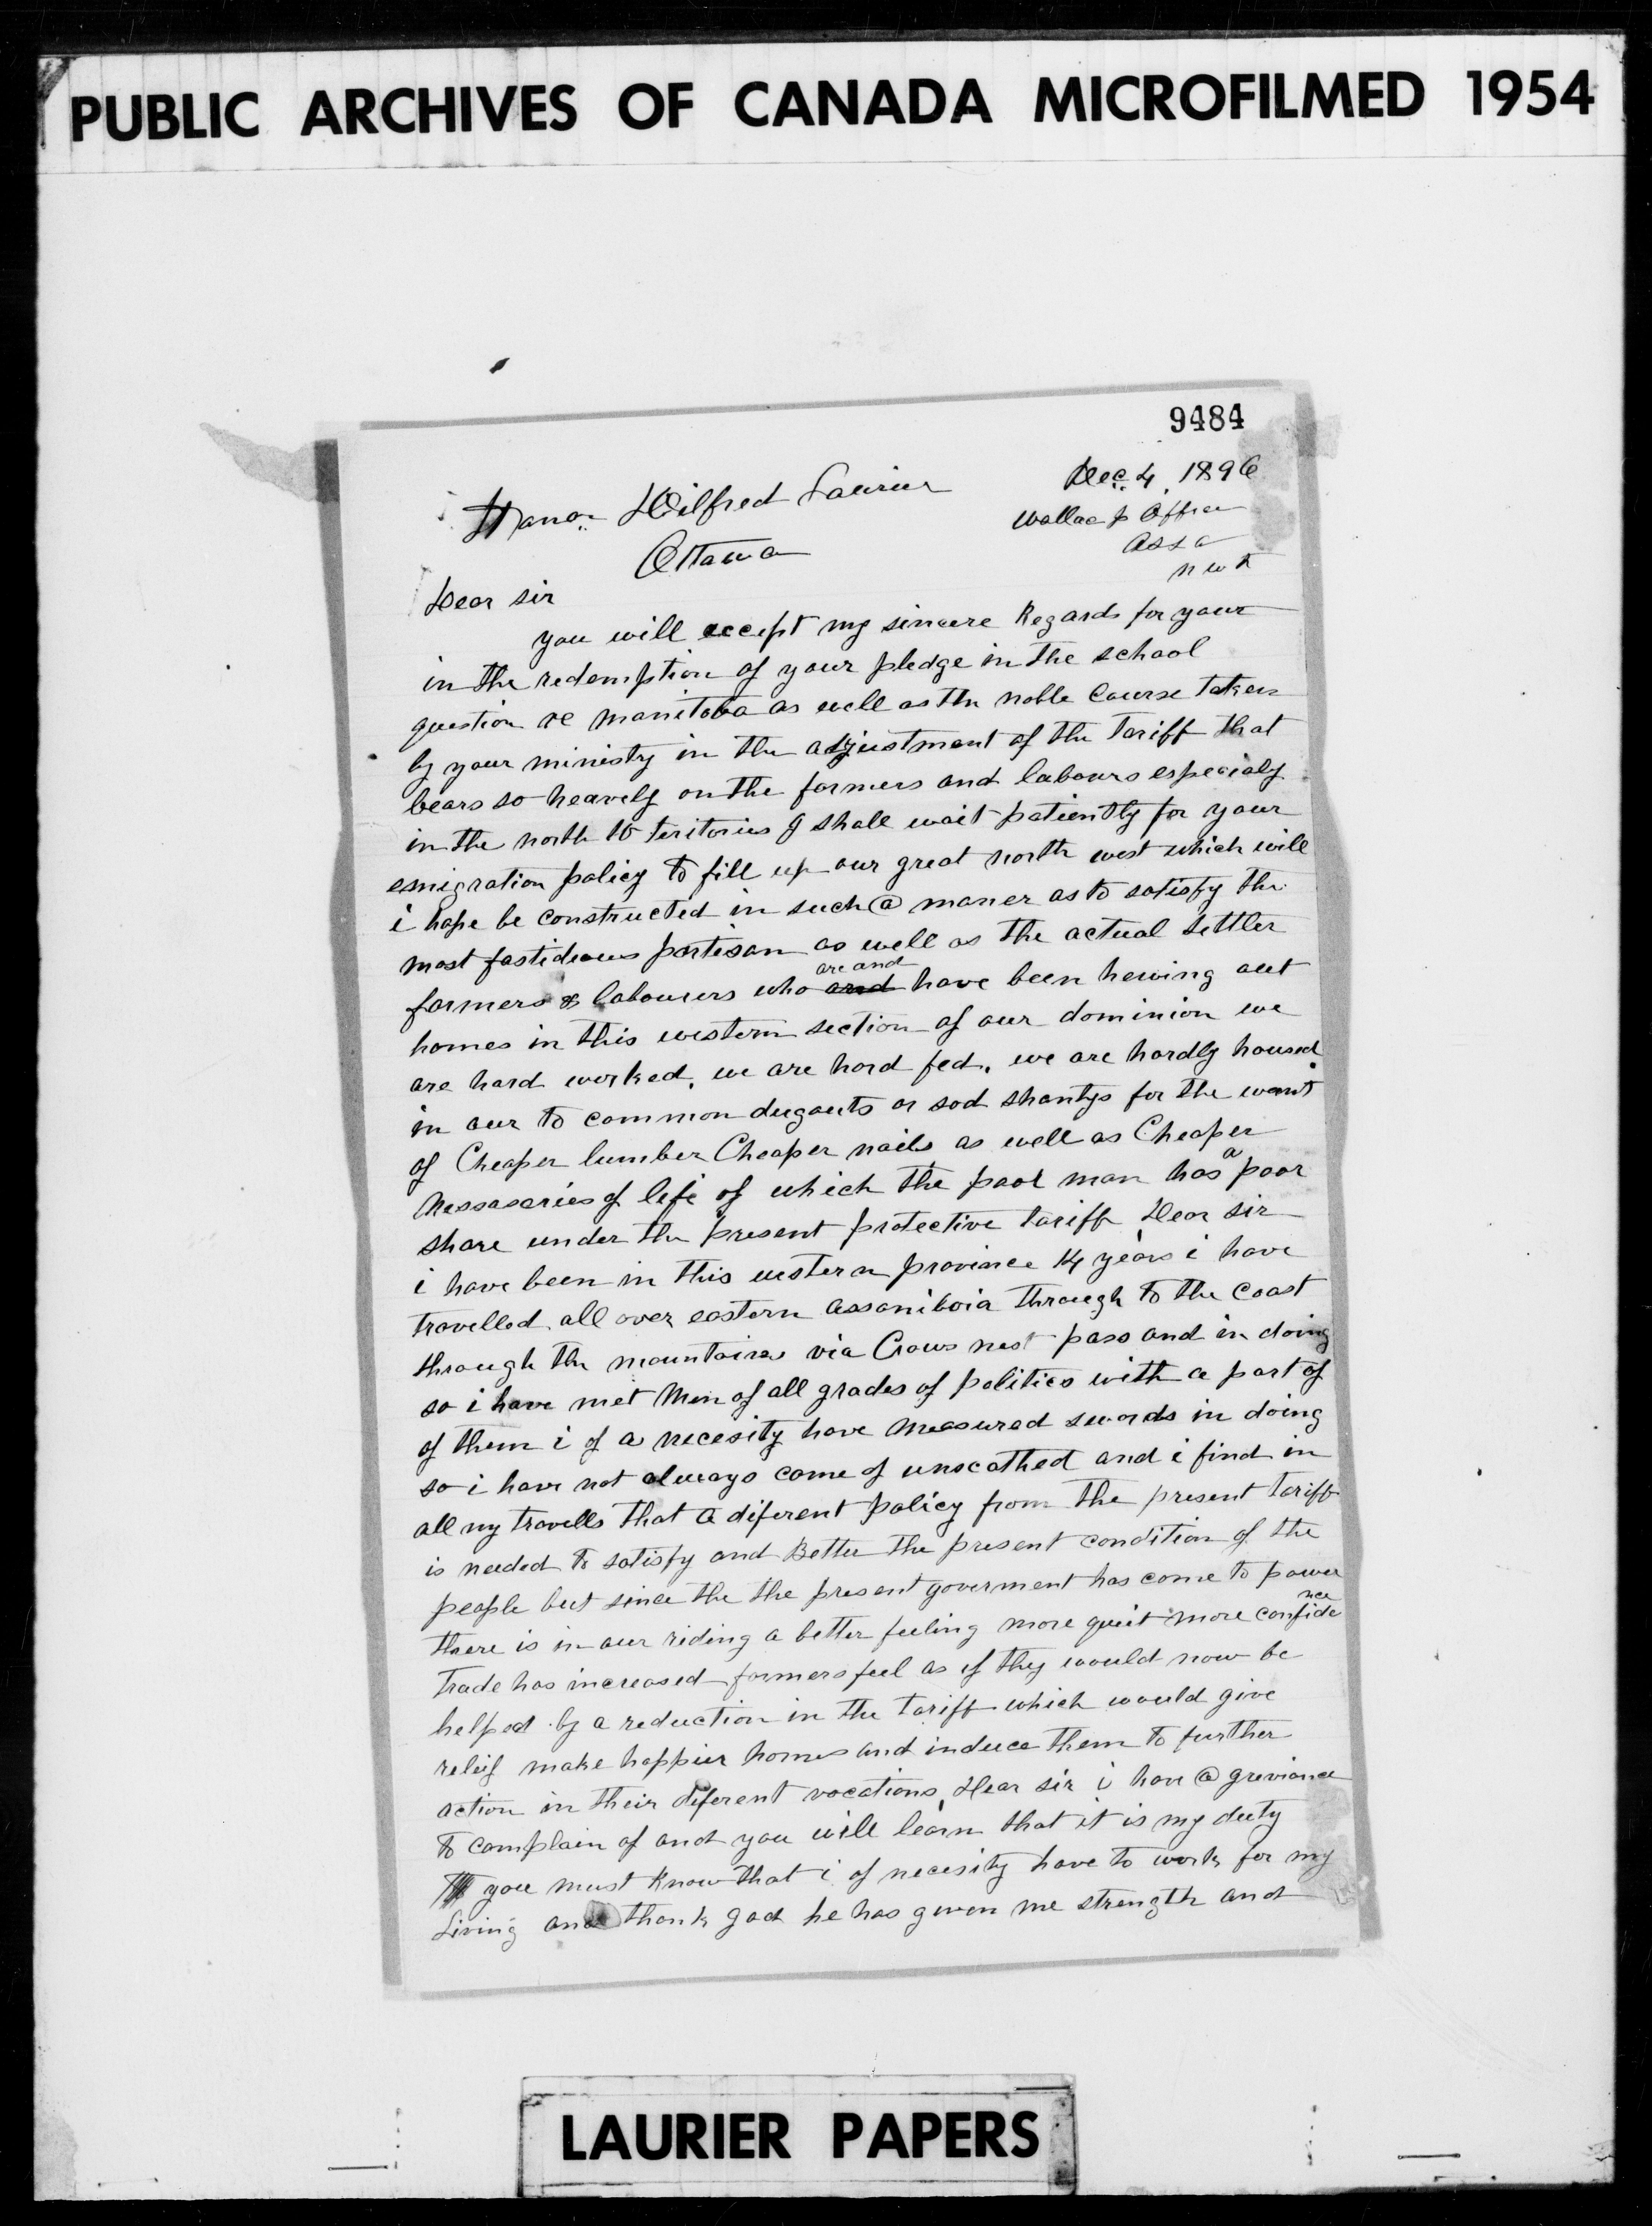 PUBLIC ARCHIVES OF CANADA MICROFILMED 1954
9484
Dec. 4, 1896
Honor Wilfred Laurier
Wallace p Office
Ottawa
Assa
n w t
Dear sir
you will accept my sincere Regards for your
in the redemption of your pledge in the school
question re manitoba as well as the noble Course taken
by your ministry in the adjustment of the tariff that
bears so heavely on the farmers and labours especialy
in the north W teritories I shall wait patiently for your
emigration policy to fill up our great north west which will
i hope be constructed in such @ maner as to satisfy the
most fastideous partisan as well as the actual settler
farmers & labourers who are and have been hewing out
homes in this western section of our dominion we
are hard worked, we are hard fed, we are hardly housed
in our to common dugouts or sod shantys for the want
of Cheaper lumber Cheaper nails as well as Cheaper
Nessasaries of life of which the poor man has a poor
share under the present protective tariff Dear sir
i have been in this western province 14 years i have
travelled all over eastern assoniboia through to the Coast
through the mountains via Crows nest pass and in doing
so i have met Men of all grades of politics with a part of
of them i of a necesity have Measured swords in doing
so i have not always come of unscathed and i find in
all my travells that a diferent policy from the present tariff
is needed to satisfy and Better the present condition of the
people but since the the present goverment has come to power
there is in our riding a better feeling more quiet more confidence
trade has increased farmers feel as if they would now be
helped by a reduction in the tariff which would give
relief make happier homes and induce them to further
action in their diferent vocations, Dear sir i have @ greviance
to complain of and you will learn that it is my duty
you must Know that i of necesity have to work for my
Living and thank god he has given me strength and
LAURIER PAPERS